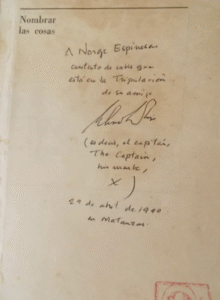 Nombrar
las cosas
A Norge Espinosa
contento de saber que
está en la Tripulación
de su amigo
(es decir, el capitán,
The Captain,
X)
29 de abril de 1990
en Matanzas.